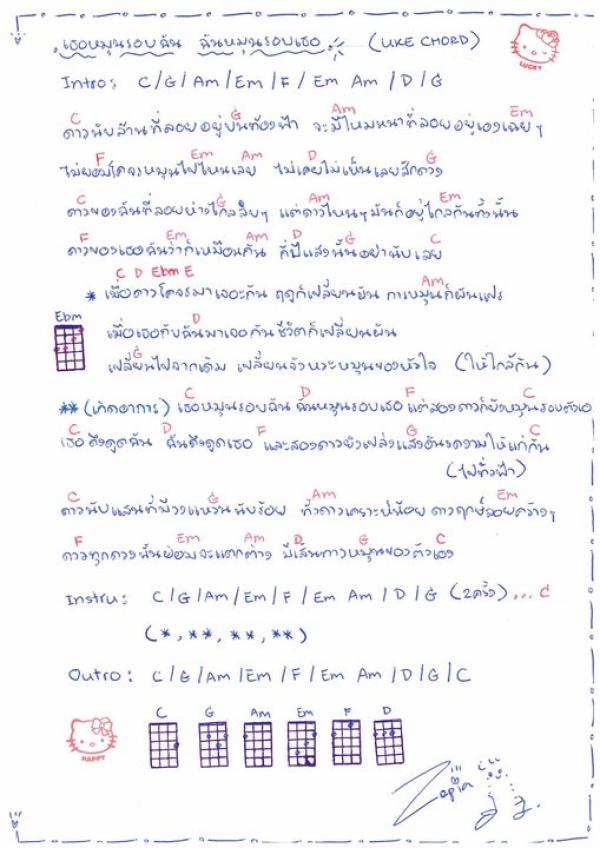 เธอหมุนรอบฉัน ฉันหมุนรอบเธอ (UKE CHORD)
LUCKY
Intro: C/G/Am/Em/F/Em Am/D/G
C G Am Em
ดาวนับล้านที่ลอยอยู่บนท้องฟ้า จะมีไหมหนาที่ลอยอยู่เองเฉยๆ
F Em Am D G
ไม่ยอมโคจรหมุนไปไหนเลย ไม่เคยไม่เห็นเลยสักดวง
C G Am Em
ดาวของฉันที่ลอยห่างไกลลิบๆ แต่ดาวไหนๆมันก็อยู่ไกลกันทั้งนั้น
F Em Am D G C
ดาวของเธอฉันว่าก็เหมือนกัน ที่มีแสงนั้นอย่านับเลย
C D Ebm E Am
* เมื่อดาวโคจรมาเจอะกัน ฤดูก็เปลี่ยนผัน การหมุนก็ผันแปร
Ebm
เมื่อเธอกับฉันมาเจอกันชีวิตก็เปลี่ยนผัน
G
เปลี่ยนไปจากเดิม เปลี่ยนจังหวะหมุนของหัวใจ (ให้ใกล้กัน)
C D F C
** (เกิดอาการ) เธอหมุนรอบฉัน ฉันหมุนรอบเธอ แต่สองดาวก็ยังหมุนรอบตัวเอง
C D F G C
เธอดึงดูดฉัน ฉันดึงดูดเธอ และสองดาวยังเปล่งแสงอันงดงามให้แก่กัน
(ไปทั่วฟ้า)
C G Am Em
ดาวนับแสนที่มีวงแหวนนับร้อย ทั้งดาวเคราะห์น้อย ดาวฤกษ์ลอยคว้างๆ
F Em Am D G C
ดาวทุกดวงนั้นย่อมจะแตกต่าง มีเส้นทางหมุนของตัวเอง
Instru: C/G/Am/Em/F/Em Am/D/G (2ครั้ง) ... C
(*, **, **, **)
Outro: C/G/Am/Em/F/Em Am/D/G/C
C G Am Em F D
HAPPY